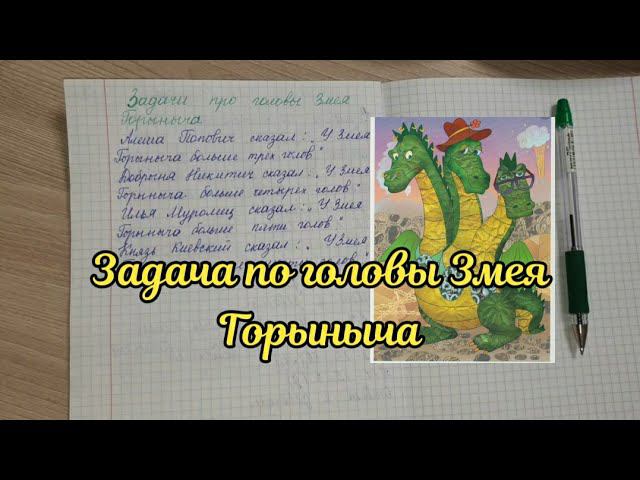 Задачи про головы Змея
Горыныча
Алеша Попович сказал: „У Змея
Горыныча больше трех голов"
Добрыня Никитич сказал: „У Змея
Горыныча больше четырех голов"
Илья Муромец сказал: „У Змея
Горыныча больше пяти голов"
Князь Киевский сказал: „У Змея
Задача по головы Змея
Горыныча